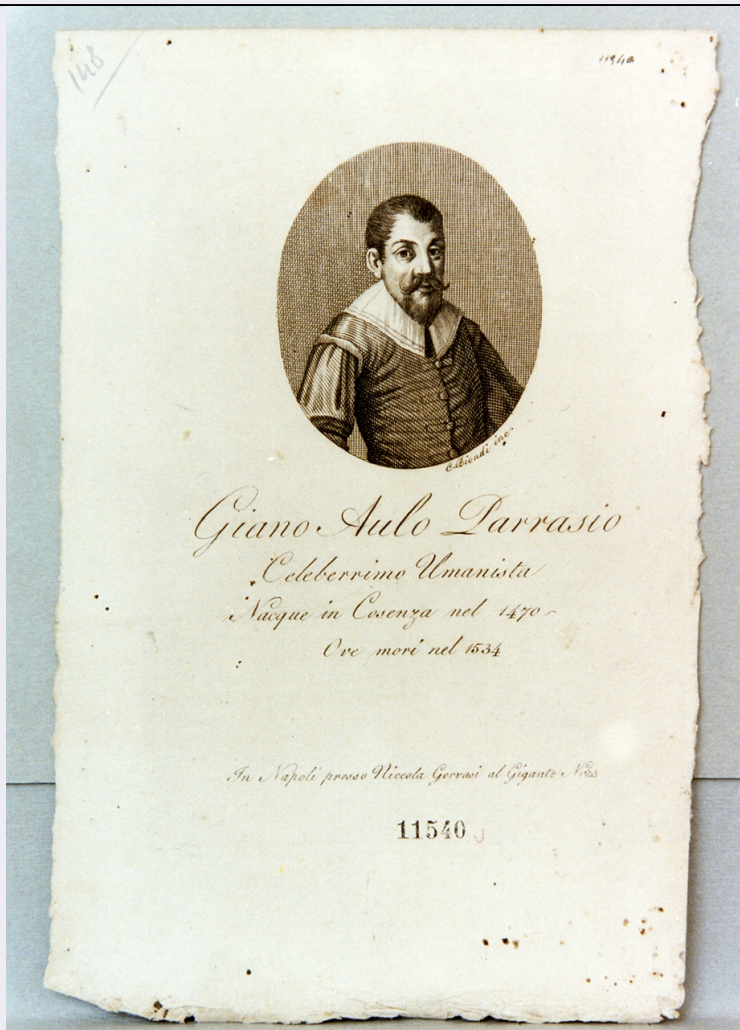 148
11540
C. Biondi inc.
Giano Aulo Parrasio
Celeberrimo Umanista
Nacque in Cosenza nel 1470
Ove morì nel 1534
In Napoli presso Niccola Gervasi al Gigante
11540